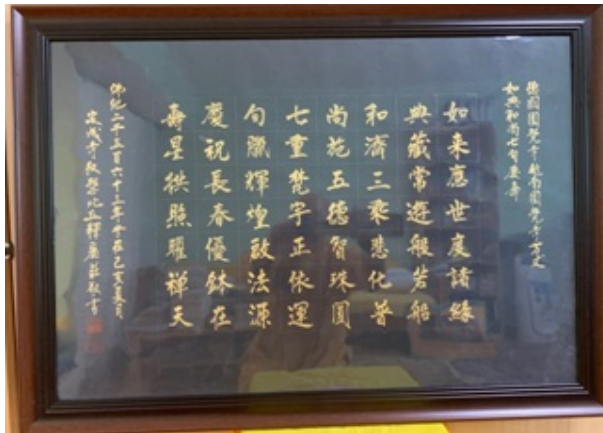 德國圓覺寺越南圓覺寺方丈
如典和尚七旬慶壽
如來應世度諸緣
典藏常遊般若船
和濟三乘悲化普
尚施五德智珠圓
七重梵宇正依運
旬臘輝煌啟法源
慶祝長春優鉢在
壽星拱照耀禪天
佛紀二千五百六十三年己亥夏月
成寺比丘釋廣莊敬書